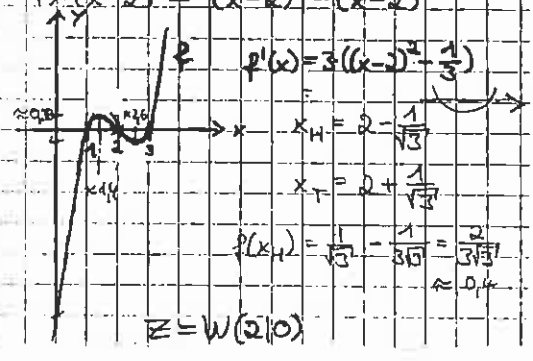 (x-2)³ - (x-2)
y
f
f'(x) = 3((x-2)² - 1/3)
=
x
1 2 3
≈1,4
x_H = 2 - 1/√3
x_T = 2 + 1/√3
f(x_H) = 1/√3 - 1/(3√3) = 2/(3√3)
≈ 0,4
Z = W(2|0)